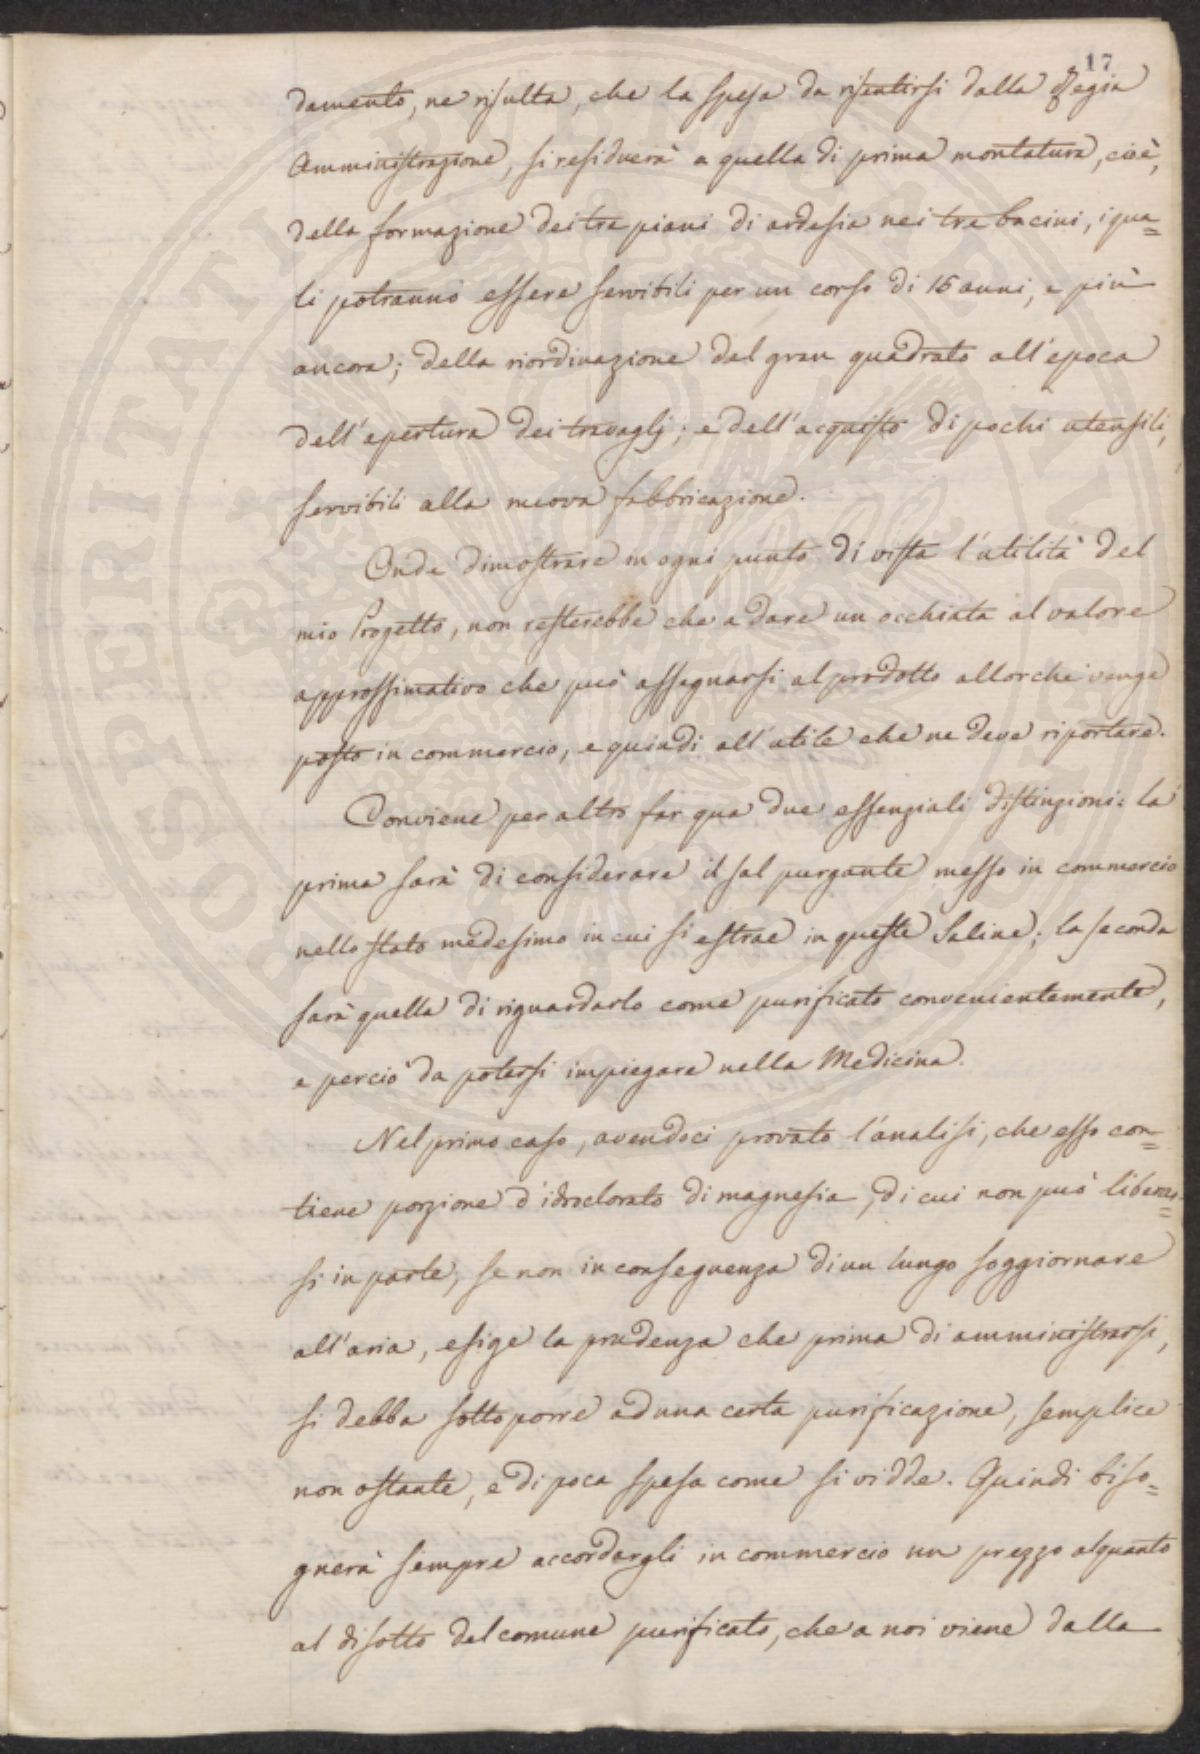 17
damento, ne risulta, che la spesa da risentirsi dalla Regia
Amministrazione, si residuerà a quella di prima montatura, cioè,
della formazione dei tre piani di ardesia nei tre bacini, i qua=
li potranno essere servibili per un corso di 15 anni, e più
ancora; della riordinazione del gran quadrato all'epoca
dell'epertura dei travaglj; e dell'acquisto di pochi utensili,
servibili alla nuova fabbricazione.
Onde dimostrare in ogni punto di vista l'utilità del
mio Progetto, non resterebbe che a dare un occhiata al valore
approssimativo che può assegnarsi al prodotto allorchè venga
posto in commercio, e quindi all'utile che ne deve riportare.
Conviene per altro far qua due essenziali distinzioni: la
prima sarà di considerare il sal purgante messo in commercio
nello stato medesimo in cui si estrae in queste Saline; la seconda
sarà quella di riguardarlo come purificato convenientemente,
e perciò da potersi impiegare nella Medicina.
Nel primo caso, avendoci provato l'analisi, che esso con=
tiene porzione d'idroclorato di magnesia, di cui non può liberar=
si in parte, se non in conseguenza di un lungo soggiornare
all'aria, esige la prudenza che prima di amministrarsi,
si debba sottoporre ad una certa purificazione, semplice
non ostante, e di poca spesa come si vidde. Quindi biso=
gnerà sempre accordargli in commercio un prezzo alquanto
al disotto del comune purificato, che a noi viene dalla
PROSPERITATI PUBLICAE